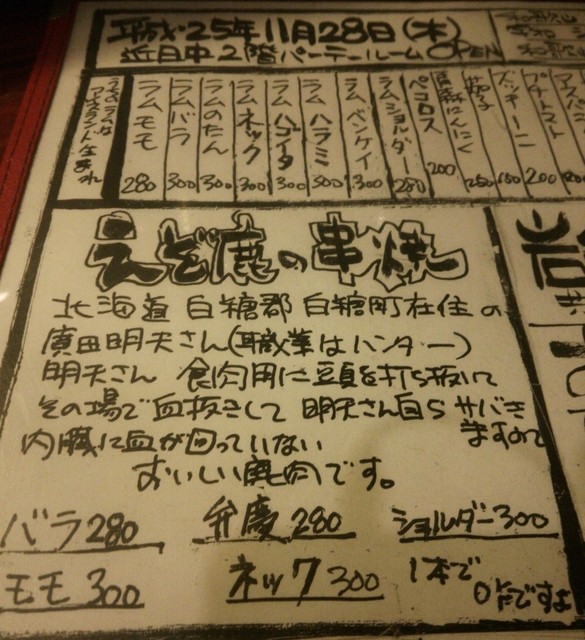 平成25年11月28日(木)
近日中2階パーテールームOPEN
和歌山
うちのラムはアイスランド生まれ
ラムモモ 280
ラムバラ 300
ラムのたん 300
ラムネック 300
ラムハゴイタ 300
ラムハラミ 300
ラムベンケイ 300
ラムショルダー 280
ペコロス 200
青森にんにく 250
茄子
ズッキーニ 150
プチトマト 200
アスパラ
えぞ鹿の串焼
北海道 白糖郡 白糖町在住の
廣田明夫さん(職業はハンター)
明夫さん 食肉用に頭を打ち抜いて
その場で血抜きして 明夫さん自らサバき
ますので
内臓に血が回っていない
おいしい鹿肉です。
バラ280 弁慶280 ショルダー300
モモ300 ネック300 1本で
OKですよ